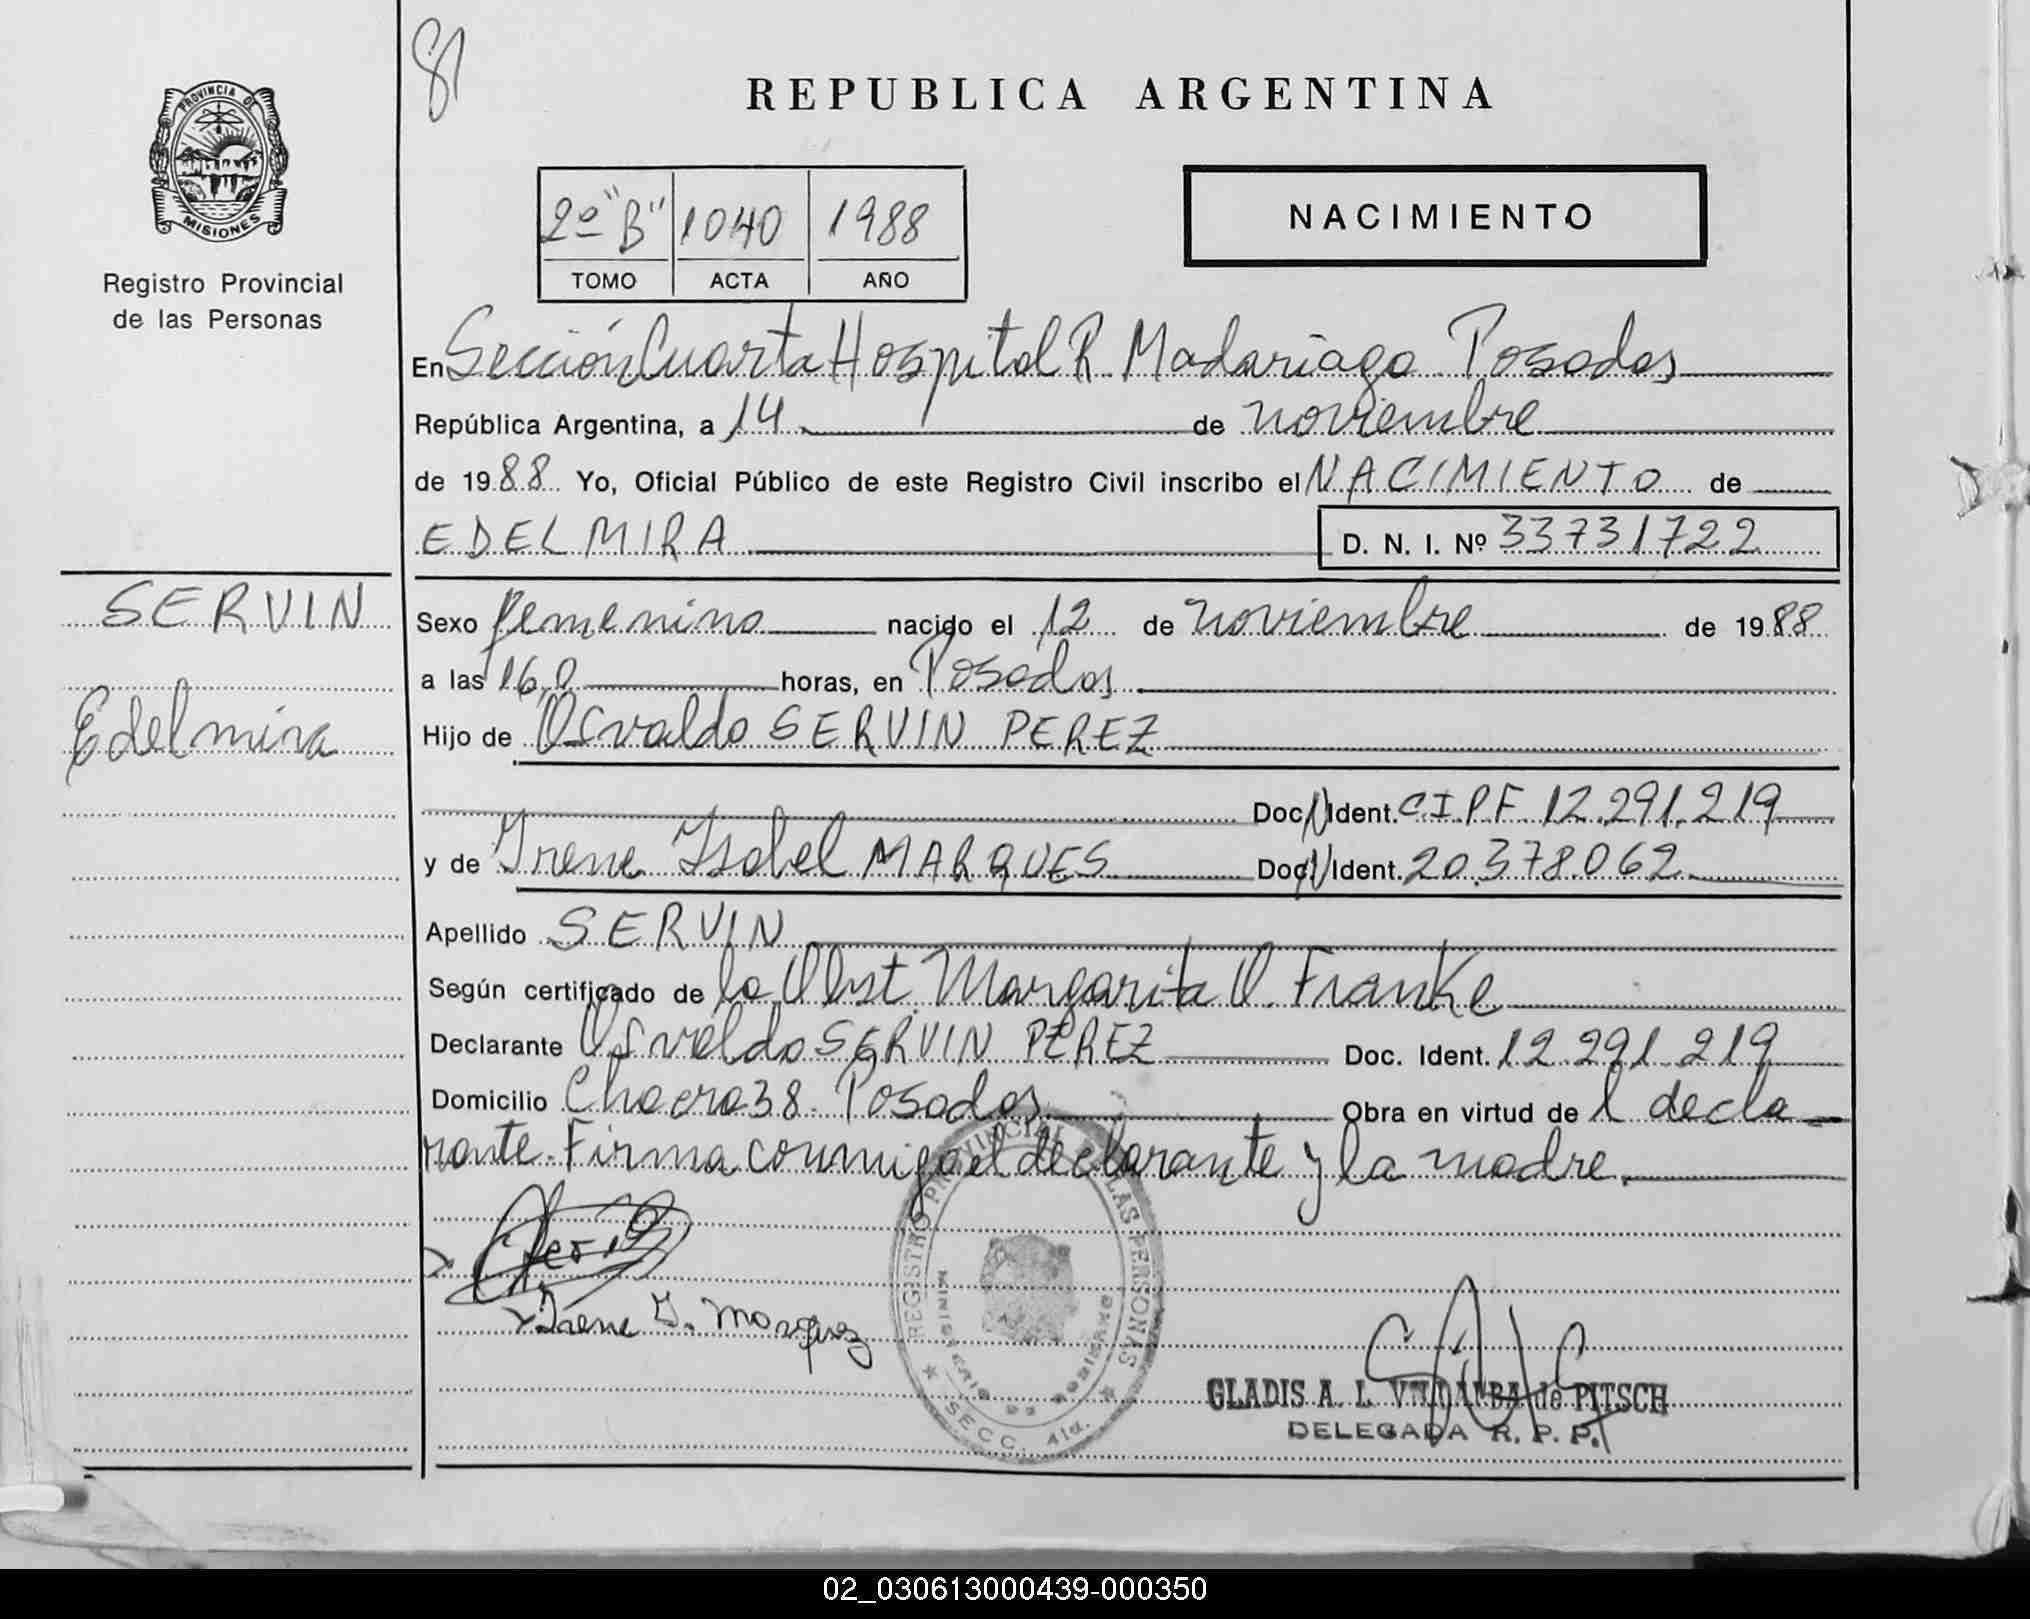 81
REPUBLICA ARGENTINA
PROVINCIA DE
MISIONES
Registro Provincial
de las Personas
2º "B" 1040 1988
TOMO ACTA AÑO
NACIMIENTO
En Sección Cuarta Hospital R. Madariaga Posadas
República Argentina, a 14 de noviembre
de 1988 Yo, Oficial Público de este Registro Civil inscribo el NACIMIENTO de
EDELMIRA D. N. I. Nº 33731722
SERVIN
Edelmira
Sexo femenino nacido el 12 de noviembre de 1988
a las 16,0 horas, en Posadas
Hijo de Osvaldo SERVIN PEREZ
Doc. N Ident. C I P F 12.291.219
y de Irene Isabel MARQUES Doc. N Ident. 20.378.062
Apellido SERVIN
Según certificado de la Obst. Margarita O. Franke
Declarante Osvaldo SERVIN PEREZ Doc. Ident. 12.291.219
Domicilio Chacra 38. Posadas Obra en virtud de l decla
rante. Firma conmigo el declarante y la madre.
Irene I. Marquez
REGISTRO PROVINCIAL DE LAS PERSONAS
MINISTERIO DE GOBIERNO
SECC. 4ta.
GLADIS A. L. VILLALBA de PITSCH
DELEGADA R. P. P.
02_030613000439-000350